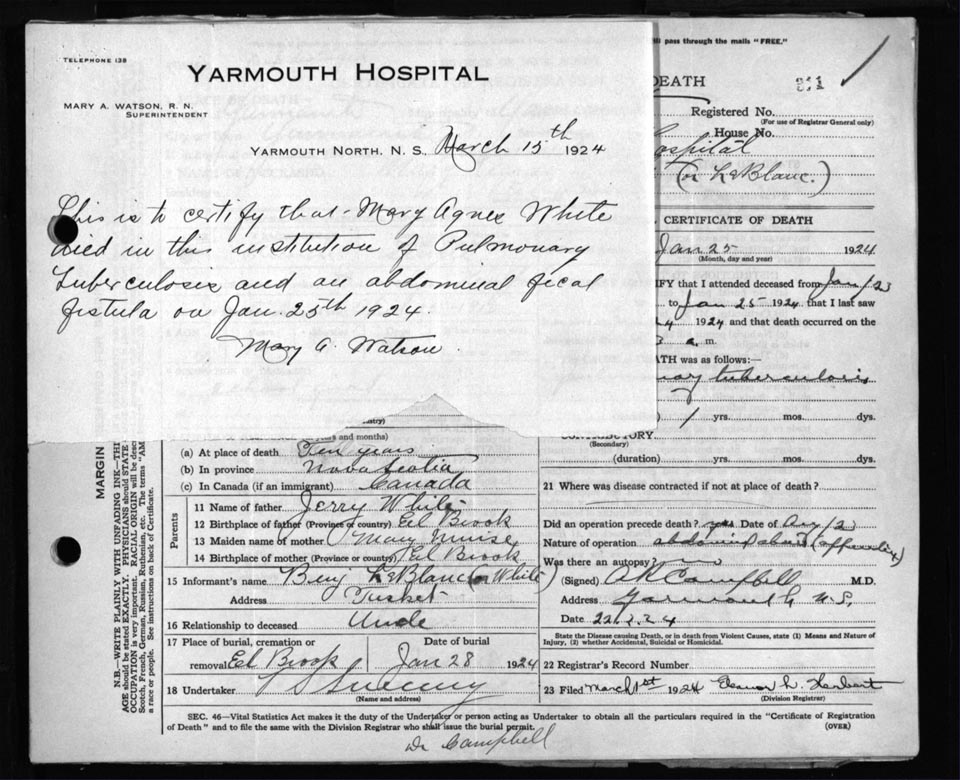 TELEPHONE 138
YARMOUTH HOSPITAL
MARY A. WATSON, R. N.
SUPERINTENDENT
YARMOUTH NORTH, N. S., March 15th 1924
This is to certify that Mary Agnes White
died in this institution of Pulmonary
Tuberculosis and an abdominal fecal
fistula on Jan. 25th 1924.
Mary A. Watson.
pass through the mails "FREE."
DEATH
Registered No.
(For use of Registrar General only)
House No.
Hospital
(or LeBlanc.)
CERTIFICATE OF DEATH
Jan 25 1924
(Month, day and year)
IFY that I attended deceased from Jan 12
to Jan 25 1924 that I last saw
24 1924 and that death occurred on the
3 a. m.
ATH was as follows:—
tuberculosis
1 yrs. mos. dys.
CONTRIBUTORY
(Secondary)
(duration) yrs. mos. dys.
21 Where was disease contracted if not at place of death?
Did an operation precede death? yes Date of Aug 12
Nature of operation abdominal
Was there an autopsy? no
(Signed) Campbell M.D.
Address Yarmouth N.S.
Date 22.2.24
State the Disease causing Death, or in death from Violent Causes, state (1) Means and Nature of
Injury, (2) whether Accidental, Suicidal or Homicidal.
22 Registrar's Record Number
23 Filed March 1st 1924 Eleanor L. Herbert
(Division Registrar)
MARGIN
N.B.—WRITE PLAINLY WITH UNFADING INK.—THI
AGE should be stated EXACTLY. PHYSICIANS should STATE
OCCUPATION is very important. RACIAL ORIGIN will be desc
Scotch, French, German, Russian, Ruthenian, etc. The terms "AM
a race or people. See instructions on back of Certificate.
years and months)
(a) At place of death Ten years
(b) In province Nova Scotia
(c) In Canada (if an immigrant) Canada
Parents
11 Name of father Jerry White
12 Birthplace of father (Province or country) Eel Brook
13 Maiden name of mother Mary Muise
14 Birthplace of mother (Province or country) Eel Brook
15 Informant's name Benj LeBlanc (or White)
Address Tusket
16 Relationship to deceased Uncle
17 Place of burial, cremation or Date of burial
removal Eel Brook Jan 28 1924
18 Undertaker Sweeny
(Name and address)
SEC. 46—Vital Statistics Act makes it the duty of the Undertaker or person acting as Undertaker to obtain all the particulars required in the "Certificate of Registration
of Death" and to file the same with the Division Registrar who shall issue the burial permit. (OVER)
Dr Campbell